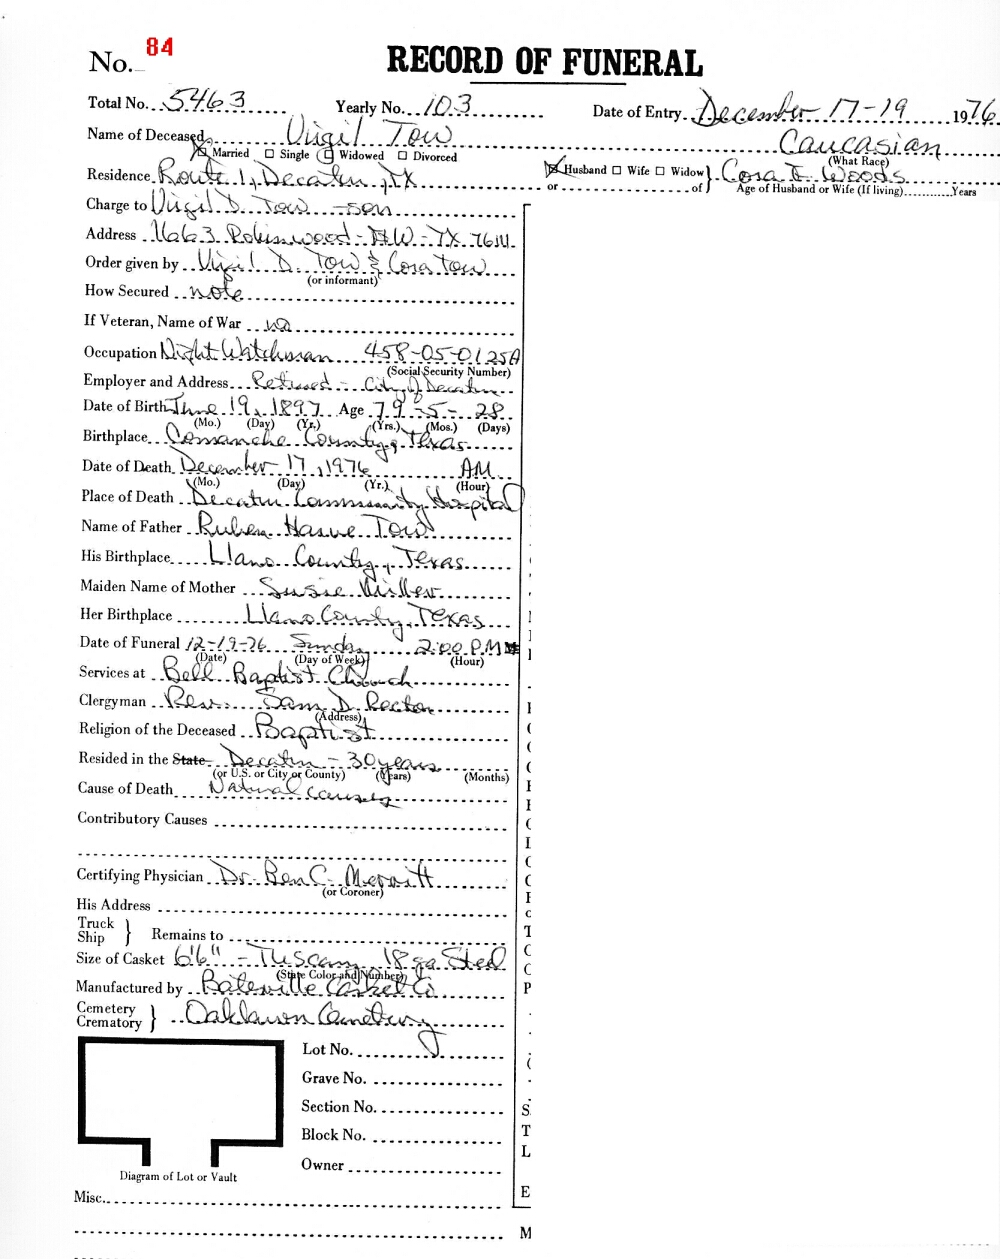 No. 84
RECORD OF FUNERAL
Total No. 5463 Yearly No. 103 Date of Entry December 17-19 1976
Name of Deceased Virgil Tow Caucasian
Married Single Widowed Divorced (What Race)
Residence Route 1, Decatur, TX Husband Wife Widow } Cora E. Woods
or of Age of Husband or Wife (If living) Years
Charge to Virgil D. Tow - son
Address 1663 Robinwood - - TX 76111
Order given by Virgil D. Tow & Cora Tow
(or informant)
How Secured note
If Veteran, Name of War no
Occupation Night Watchman 458-05-0125A
(Social Security Number)
Employer and Address Retired - City of Decatur
Date of Birth June 19, 1897 Age 79 -5- 28
(Mo.) (Day) (Yr.) (Yrs.) (Mos.) (Days)
Birthplace Comanche County, Texas
Date of Death December 17, 1976 AM
(Mo.) (Day) (Yr.) (Hour)
Place of Death Decatur Community Hospital
Name of Father Ruben Tow
His Birthplace Llano County, Texas
Maiden Name of Mother Susie Miller
Her Birthplace Llano County, Texas
Date of Funeral 12-19-76 Sunday 2:00 P.M
(Date) (Day of Week) (Hour)
Services at Bell Baptist Church
Clergyman Rev. Sam D. Rector
(Address)
Religion of the Deceased Baptist
Resided in the State Decatur - 30 years
(or U.S. or City or County) (Years) (Months)
Cause of Death Natural causes
Contributory Causes
Certifying Physician Dr. Ben C. Merritt
(or Coroner)
His Address
Truck
Ship } Remains to
Size of Casket 6'6" - Tuscany 18 ga Steel
(State Color and Number)
Manufactured by Batesville Casket Co
Cemetery
Crematory } Oaklawn Cemetery
Lot No.
Grave No.
Section No.
Block No.
Owner
Diagram of Lot or Vault
Misc.
S
T
L
E
M